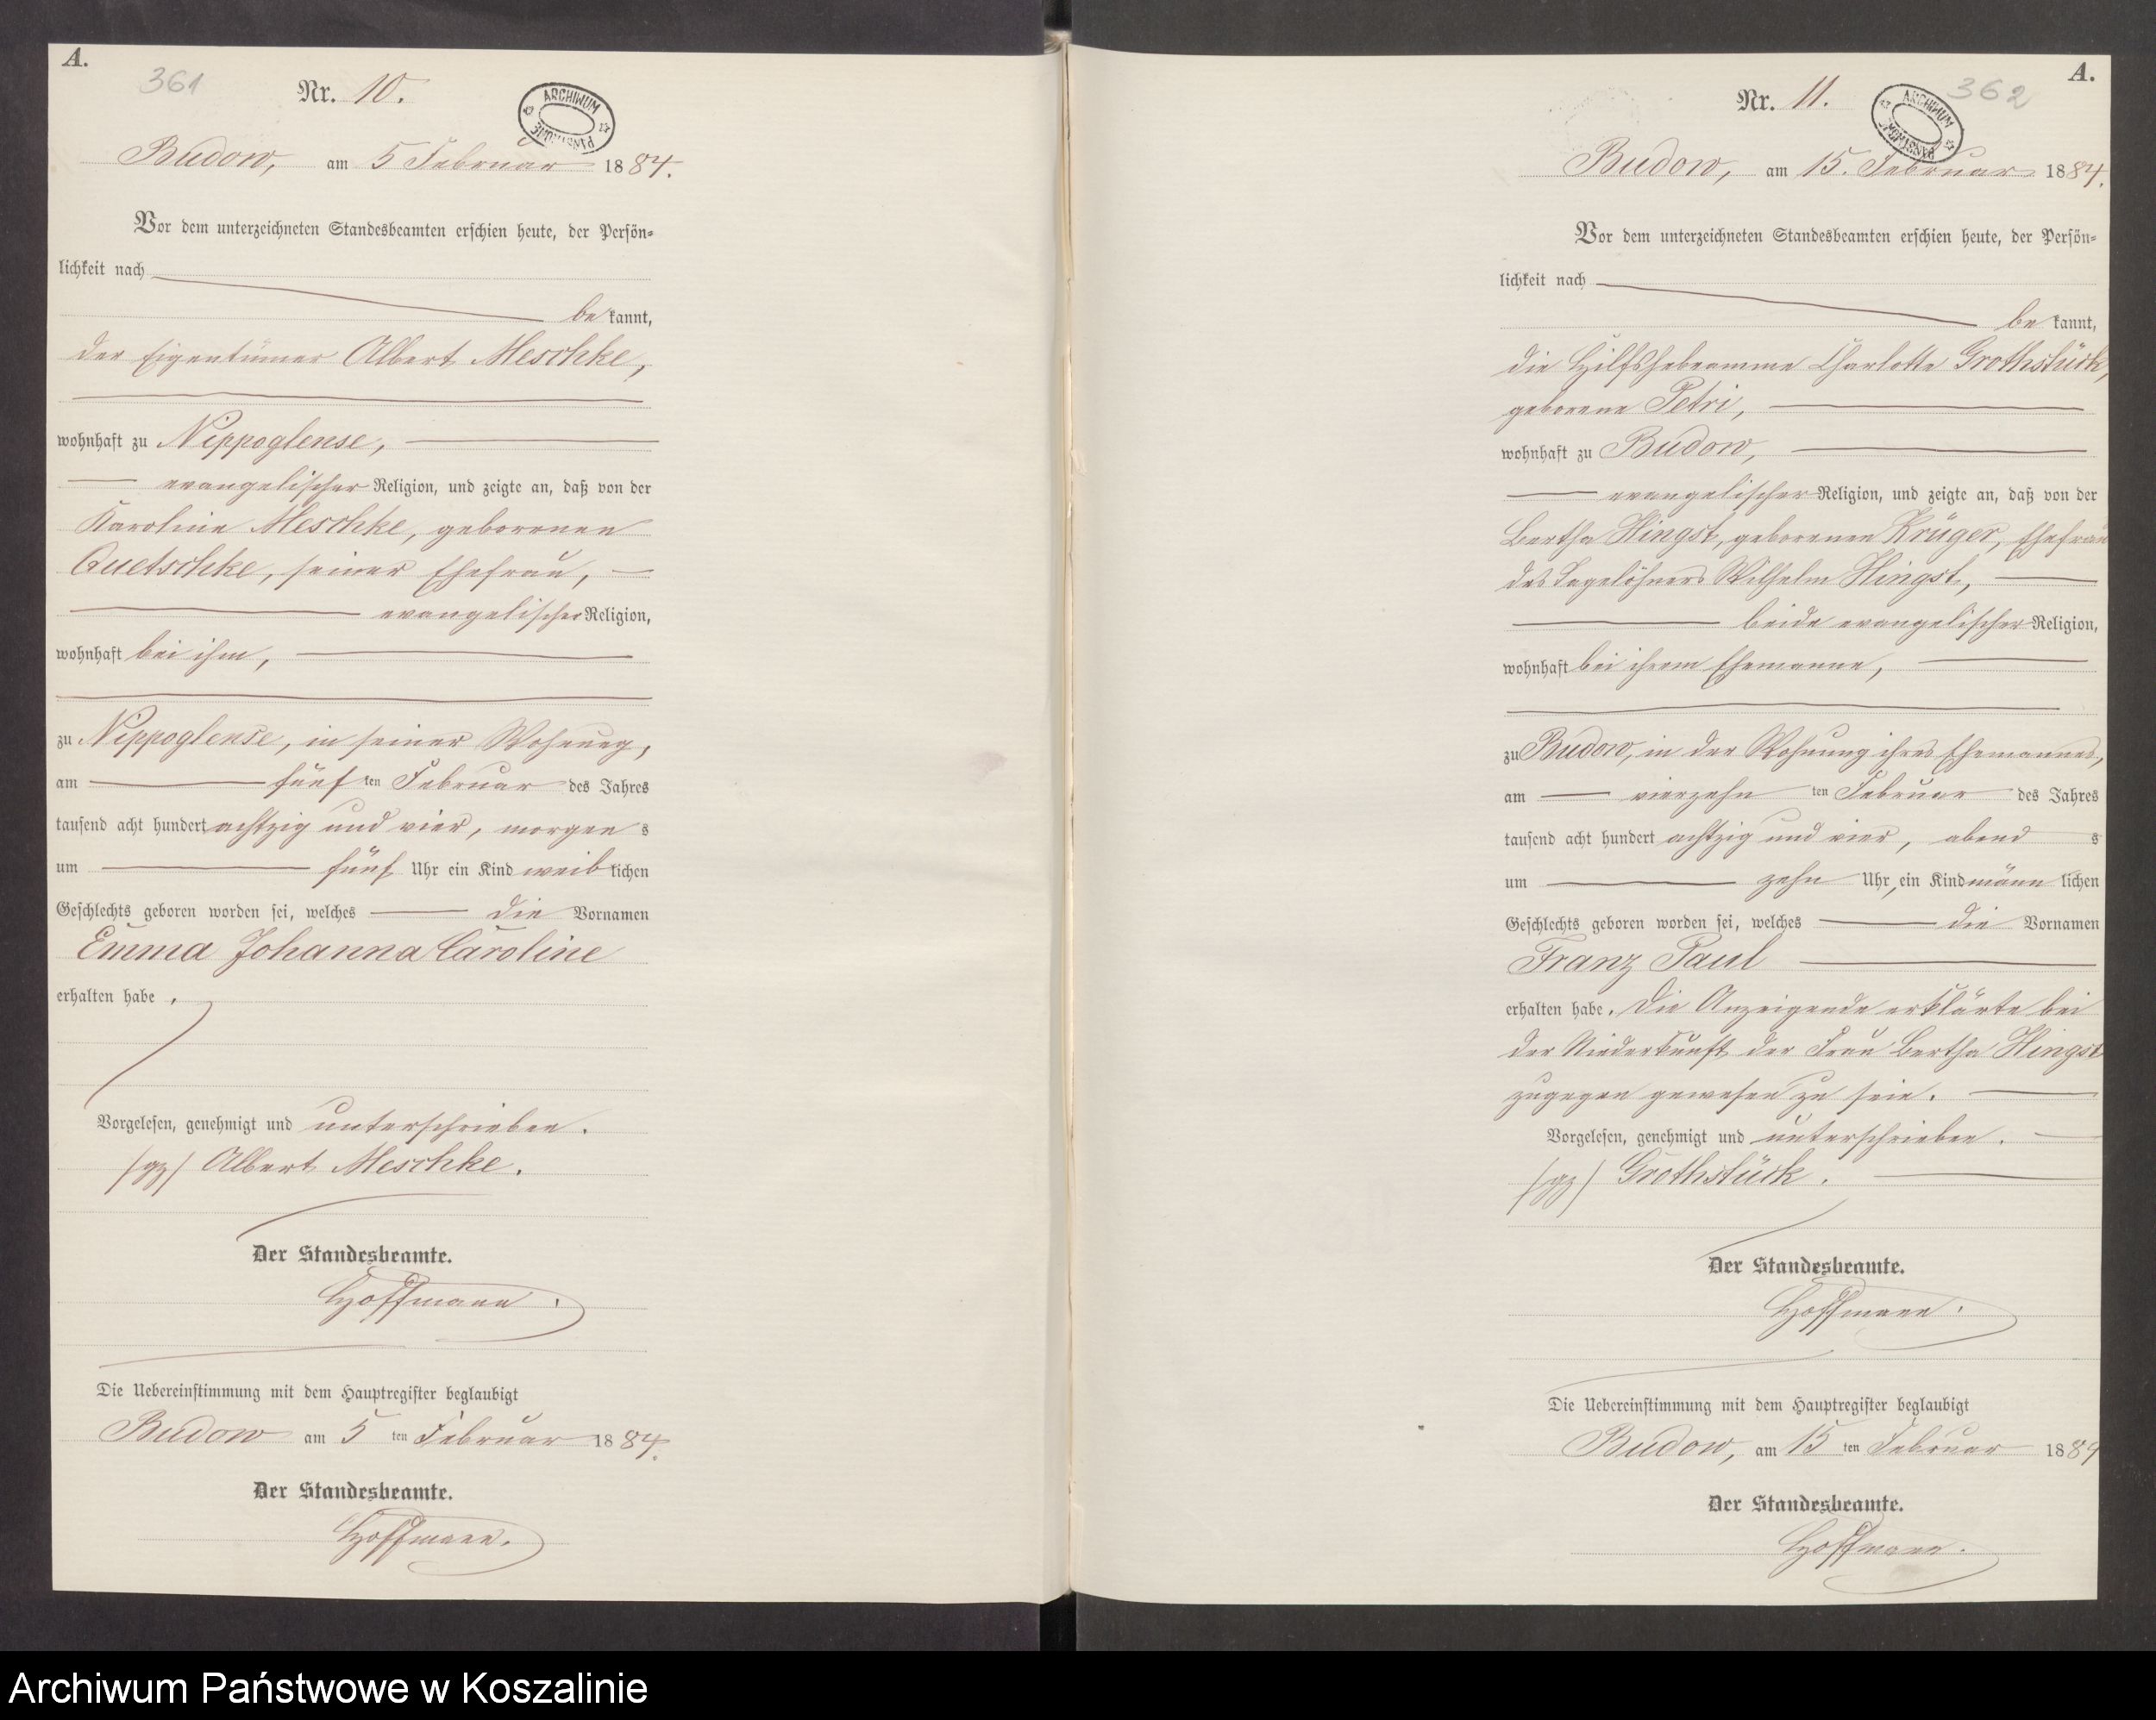 A.
361
Nr. 10.
ARCHIWUM PAŃSTWOWE
Budow, am 5 Februar 1884.
Vor dem unterzeichneten Standesbeamten erschien heute, der Persön-
lichkeit nach
be kannt,
der Eigentümer Albert Meschke,
wohnhaft zu Nippoglense,
evangelischer Religion, und zeigte an, daß von der
Karoline Meschke, geborenen
Quetschke, seiner Ehefrau,
evangelischer Religion,
wohnhaft bei ihm,
zu Nippoglense, in seiner Wohnung,
am fünf ten Februar des Jahres
tausend acht hundert achtzig und vier, morgen s
um fünf Uhr ein Kind weib lichen
Geschlechts geboren worden sei, welches die Vornamen
Emma Johanna Caroline
erhalten habe.
Vorgelesen, genehmigt und unterschrieben.
(gz) Albert Meschke.
Der Standesbeamte.
Hoffmann.
Die Uebereinstimmung mit dem Hauptregister beglaubigt
Budow am 5 ten Februar 1884.
Der Standesbeamte.
Hoffmann.
A.
362
Nr. 11.
ARCHIWUM PAŃSTWOWE
Budow, am 15. Februar 1884.
Vor dem unterzeichneten Standesbeamten erschien heute, der Persön-
lichkeit nach
be kannt,
die Hilfshebeamme Charlotte Grothstück,
geborene Petri,
wohnhaft zu Budow,
evangelischer Religion, und zeigte an, daß von der
Bertha Hingst, geborenen Krüger, Ehefrau
des Tagelöhners Wilhelm Hingst,
beide evangelischer Religion,
wohnhaft bei ihrem Ehemanne,
zu Budow, in der Wohnung ihres Ehemannes,
am vierzehn ten Februar des Jahres
tausend acht hundert achtzig und vier, abend s
um zehn Uhr, ein Kind männ lichen
Geschlechts geboren worden sei, welches die Vornamen
Franz Paul
erhalten habe. Die Anzeigende erklärte bei
der Niederkunft der Frau Bertha Hingst
zugegen gewesen zu sein.
Vorgelesen, genehmigt und unterschrieben.
(gz) Grothstück.
Der Standesbeamte.
Hoffmann.
Die Uebereinstimmung mit dem Hauptregister beglaubigt
Budow, am 15 ten Februar 1884
Der Standesbeamte.
Hoffmann.
Archiwum Państwowe w Koszalinie